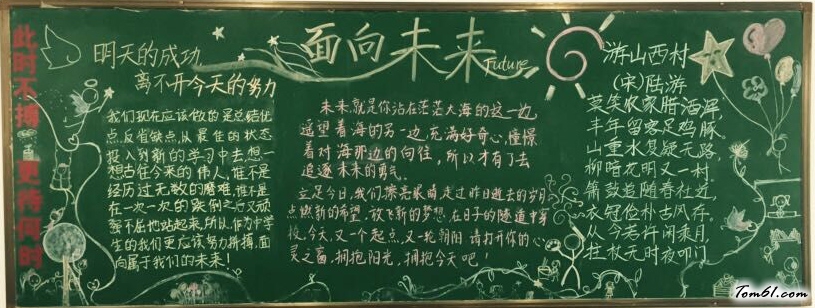 此时不搏更待何时
明天的成功
离不开今天的努力
我们现在应该做的是总结优
点,反省缺点,从最佳的状态
投入到新的学习中去,想一
想古往今来的伟人,谁不是
经历过无数的磨难,谁不是
在一次一次的跌倒之后又顽
强不屈地站起来,所以,作为中学
生的我们更应该努力拼搏,面
向属于我们的未来!
面向未来
Future
未来就是你站在茫茫大海的这一边
遥望着海的另一边,充满好奇心,憧憬
着对海那边的向往,所以才有了去
追逐未来的勇气。
立足今日,我们擦亮眼睛,走过昨日逝去的岁月
点燃新的希望,放飞新的梦想,在日子的隧道中穿
梭,今天,又一个起点,又一轮朝阳,请打开你的心
灵之窗,拥抱阳光,拥抱今天吧!
游山西村
(宋)陆游
莫笑农家腊酒浑,
丰年留客足鸡豚。
山重水复疑无路,
柳暗花明又一村。
箫鼓追随春社近,
衣冠俭朴古风存。
从今若许闲乘月,
拄杖无时夜叩门。
Tom61.com